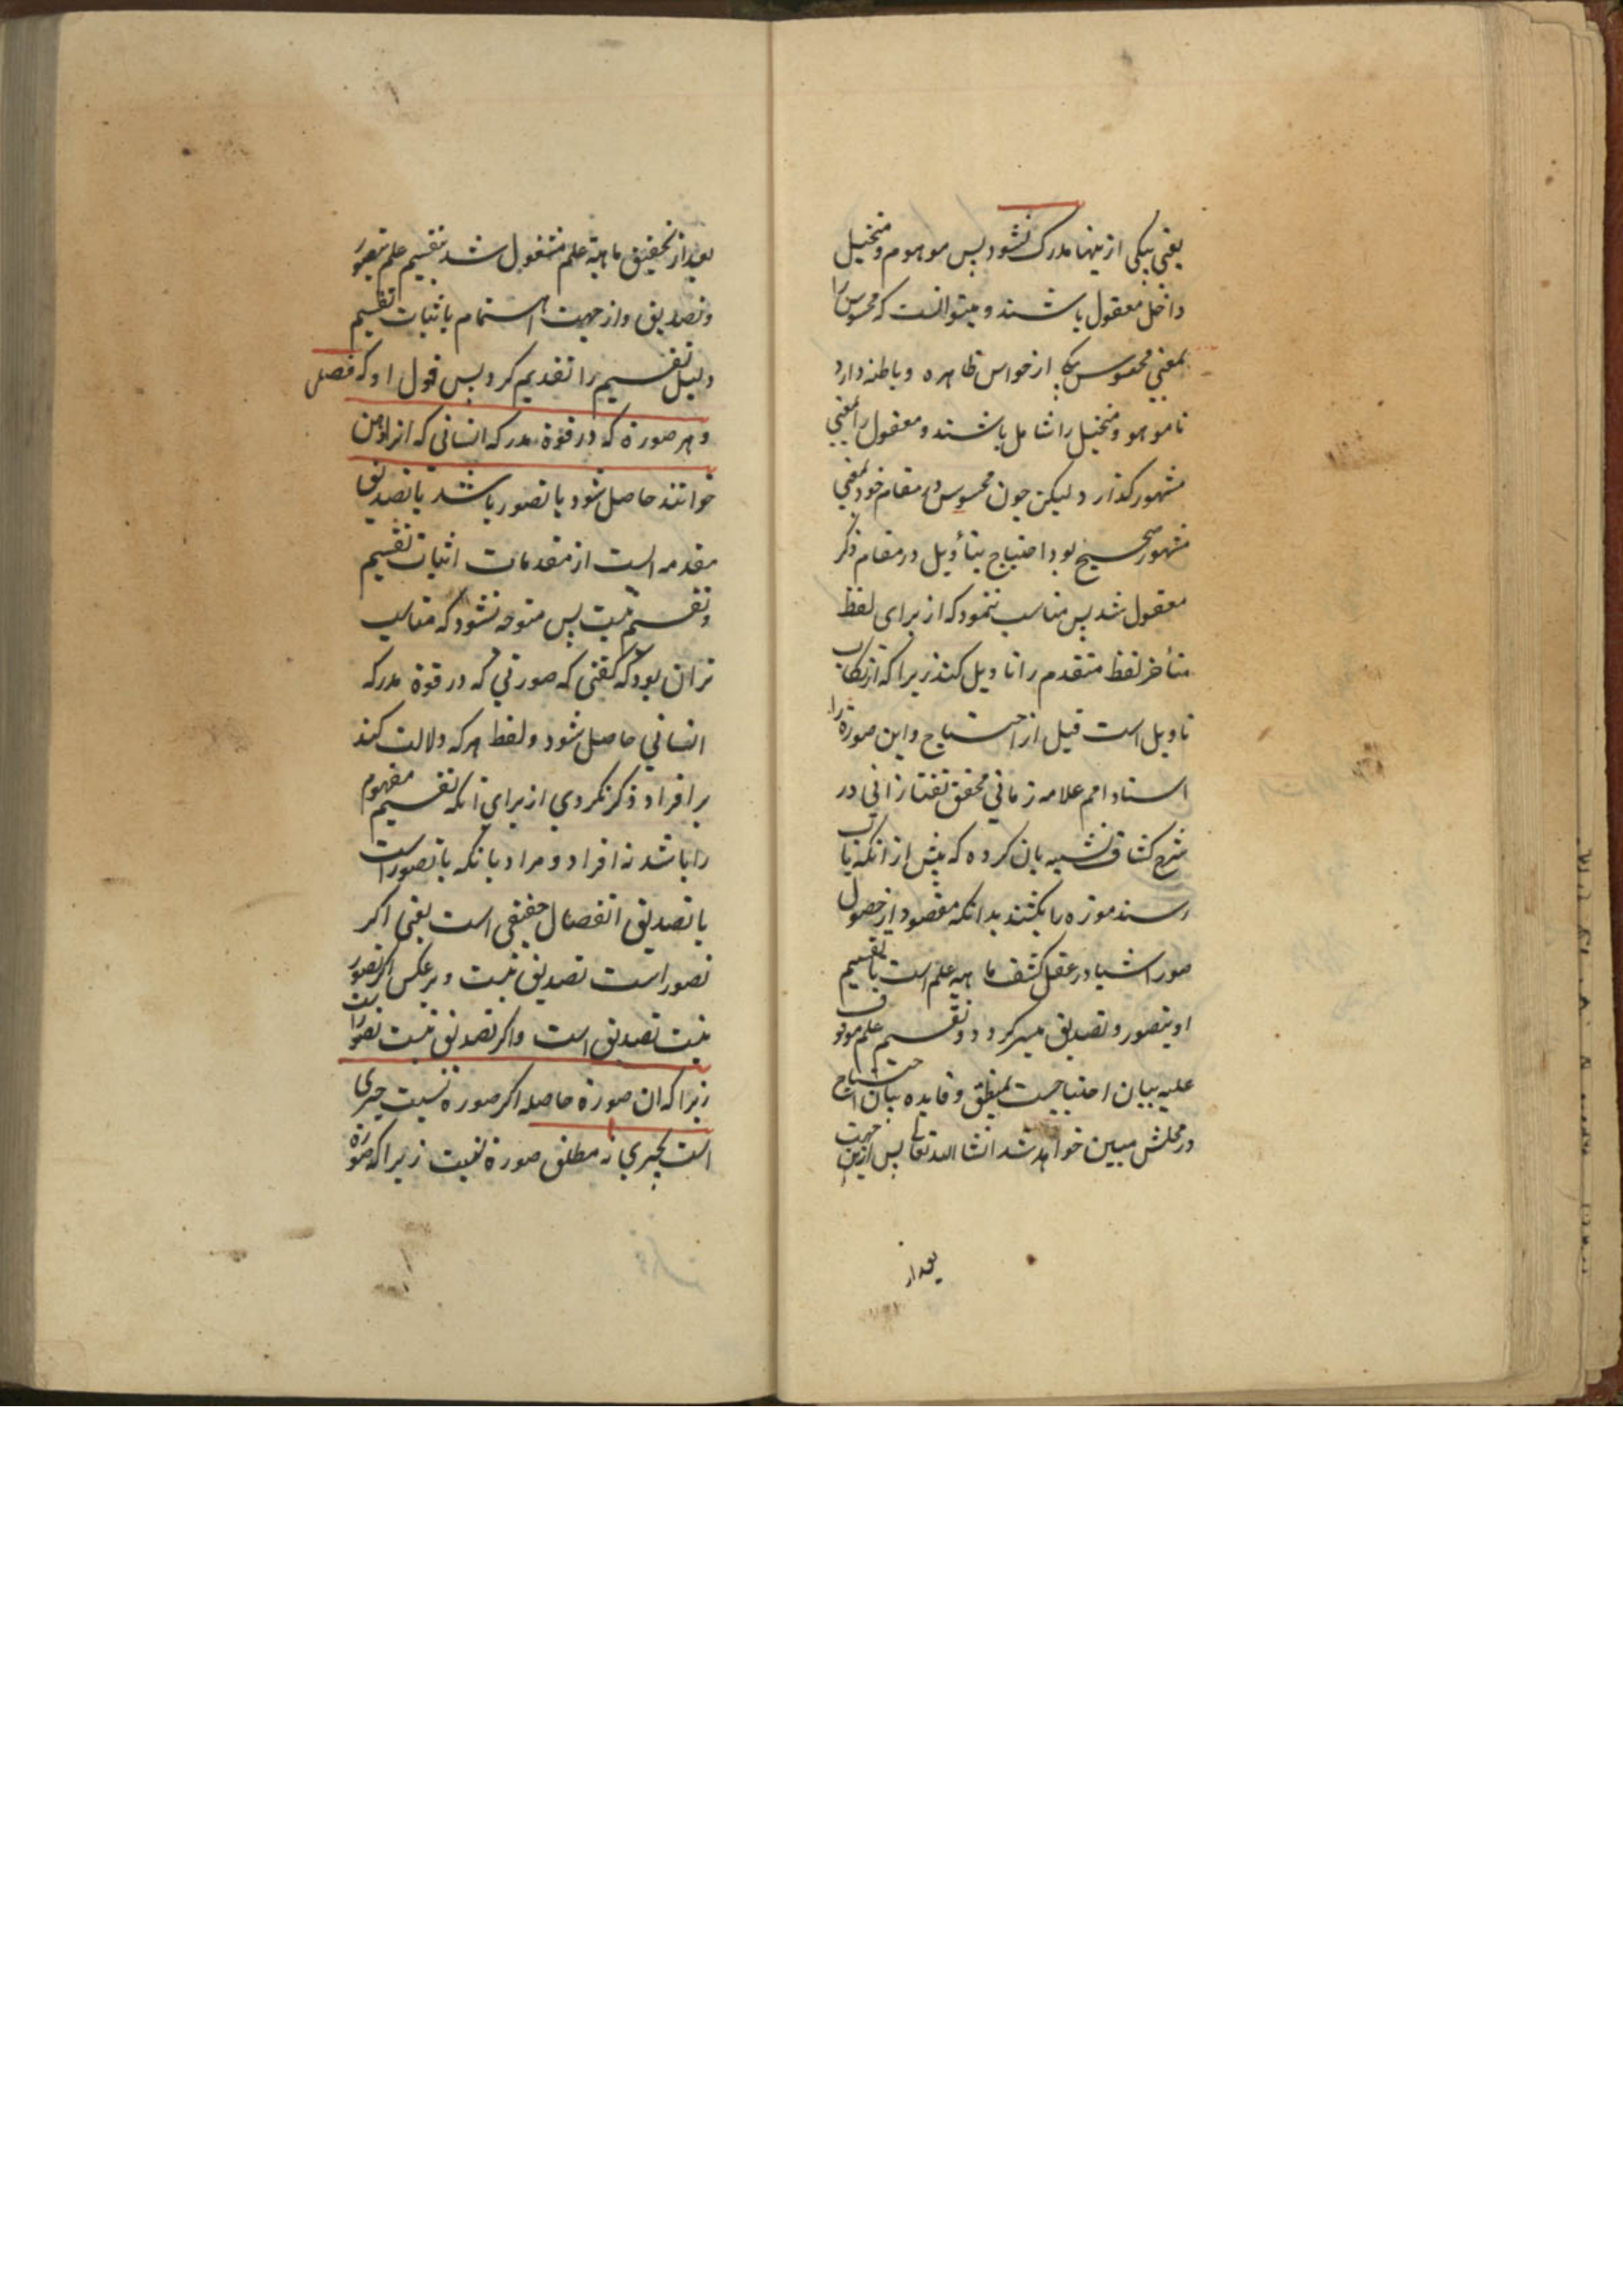 یعنی بیکی ازینها مدرک نشود پس موهوم و متخیل
داخل معقول باشند و میتوانست که محسوس را
بمعنی محسوس یکی از حواس ظاهره و باطنه دارد
تا موهوم و متخیل را شامل باشند و معقول را بمعنی
مشهور کذارد لیکن چون محسوس در مقام خود بمعنی
مشهور صحیح بود احتیاج بتأویل در مقام ذکر
معقول شد پس مناسب ننمود که از برای لفظ
متأخر لفظ متقدم را تاویل کند زیرا که ارتکاب
تاویل است قبل از احتیاج و این صورة را
استادامم علامه زمانی محقق تفتازانی در
شرح کشاف تشبیه بان کرده که پیش از انکه باب
رسند موزه را بکشند بدانکه مقصود از حصول
صور اشیا در عقل کشف ماهیه علم است تا تقسیم
او بتصور و تصدیق میسر کردد و تقسیم علم موقوف
علیه بیان احتیاجست بمنطق و فایده بیان احتیاج
در محلش مبین خواهد شد انشا الله تعالی پس ازین جهت
بعد از
بعد از تحقیق ماهیة علم مشغول شد بتقسیم علم بتصور
و تصدیق و از جهت اهتمام باثبات تقسیم
دلیل تقسیم را تقدیم کرد پس قول او که فصل
و هر صورة که در قوة مدرکه انسانی که انرا ذهن
خوانند حاصل شود یا تصور باشد یا تصدیق
مقدمه است از مقدمات اثبات تقسیم
و تقسیم نیست پس متوجه نشود که مناسب
تر ان بود که کفتی که صورتی که در قوة مدرکه
انسانی حاصل شود و لفظ هر که دلالت کند
بر افراد ذکر نکردی از برای انکه تقسیم مفهوم
را باشد نه افراد و مراد بانکه یا تصور است
یا تصدیق انفصال حقیقی است یعنی اکر
تصور است تصدیق نیست و برعکس اکر تصور
نیست تصدیق است و اکر تصدیق نیست تصور است
زیرا که ان صورة حاصله اکر صورة نسبت چیزی
است بچیزی نه مطلق صورة نسبت زیرا که صورة